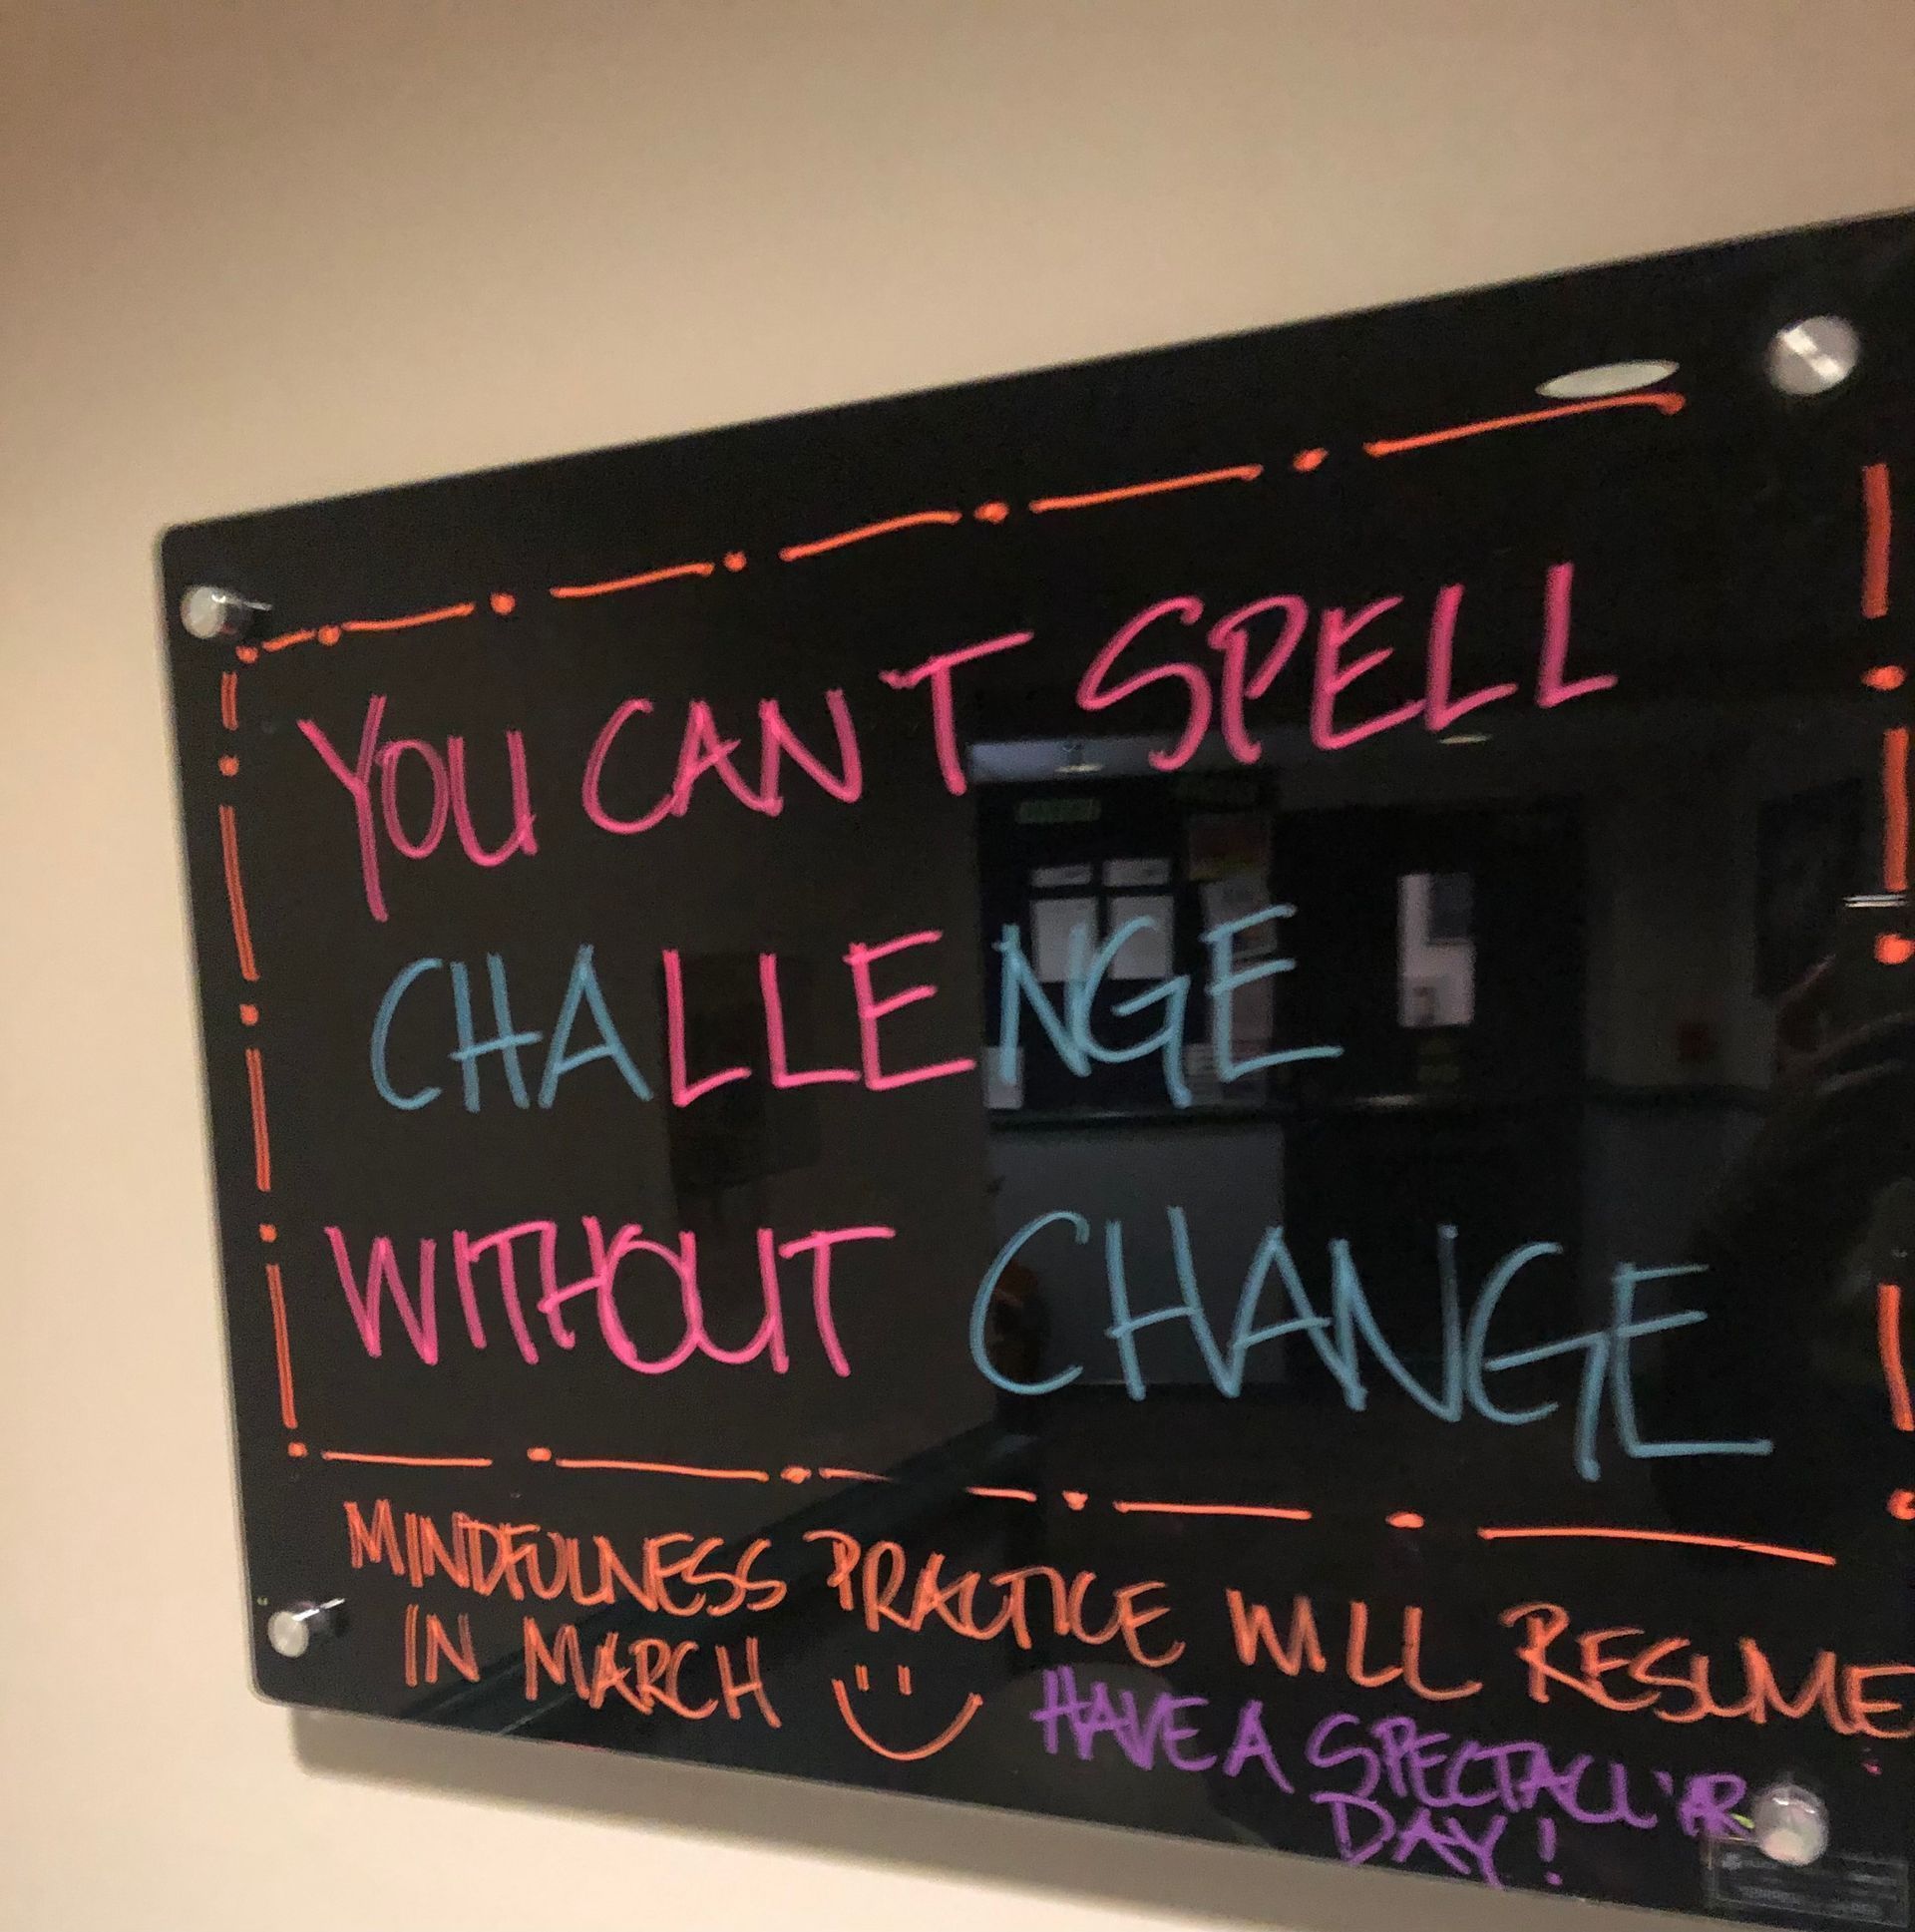 YOU CAN'T SPELL
CHALLENGE
WITHOUT CHANGE
MINDFULNESS PRACTICE WILL RESUME
IN MARCH
HAVE A SPECTACULAR
DAY!